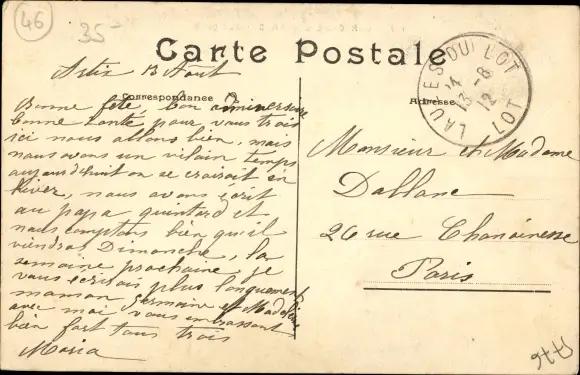 46
35-
Carte Postale
Artix 13 Aout
Correspondance
Adresse
LAUZES DU LOT
14
13-8
12
LOT
Bonne fête bon anniversaire
bonne santé pour vous trois
ici nous allons bien, mais
nous avons un vilain temps
aujourd'hui on se croirait en
hiver, nous avons écrit
au papa quintard et
nous comptons bien qu'il
viendras Dimanche, la
semaine prochaine je
vous ecrirais plus longuement
maman Germaine et Madeleine
avec moi vous embrassent
bien fort tous trois
Maria
Monsieur et Madame
Dallane
26 rue Chanoinesse
Paris